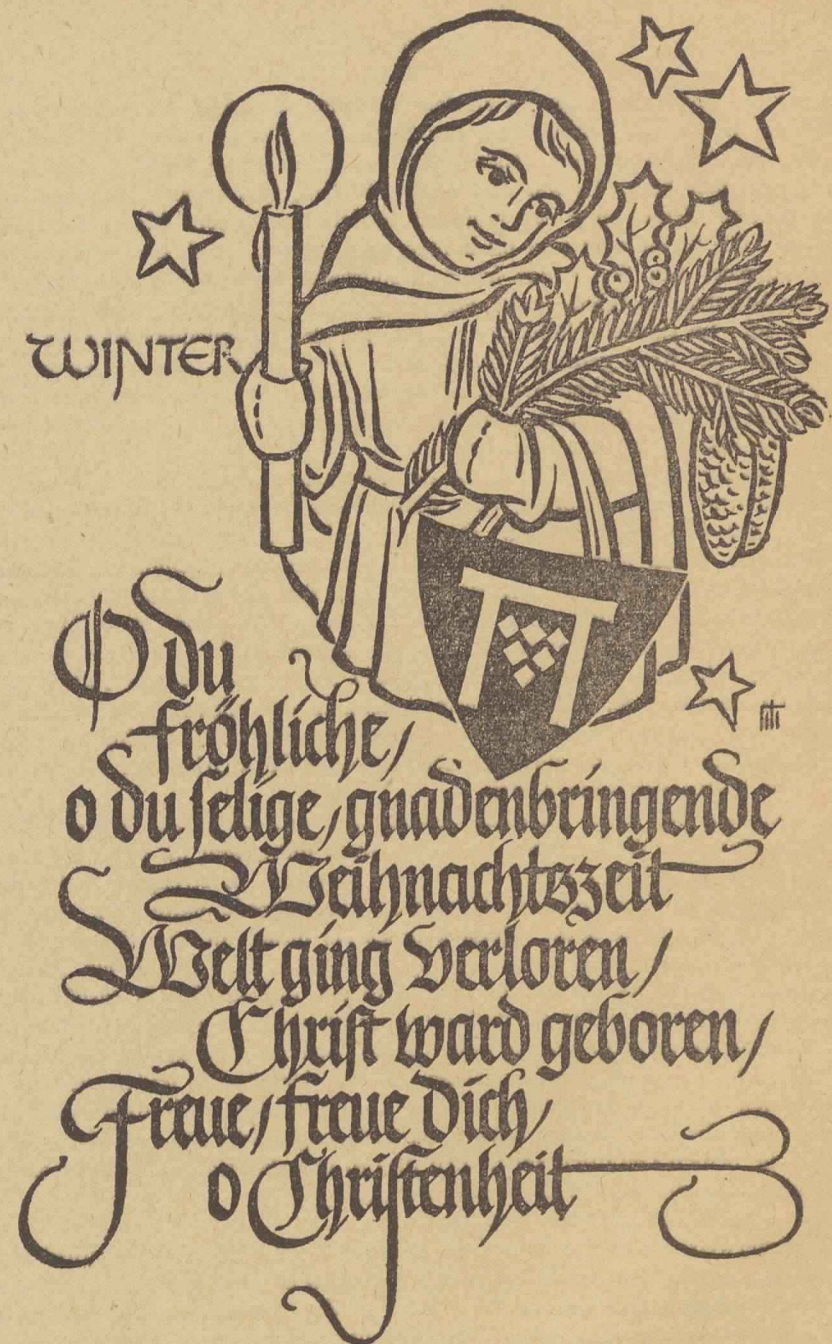 WINTER
O du
fröhliche/
o du selige/gnadenbringende
Weihnachtszeit
Welt ging verloren/
Christ ward geboren/
Freue/freue dich/
o Christenheit